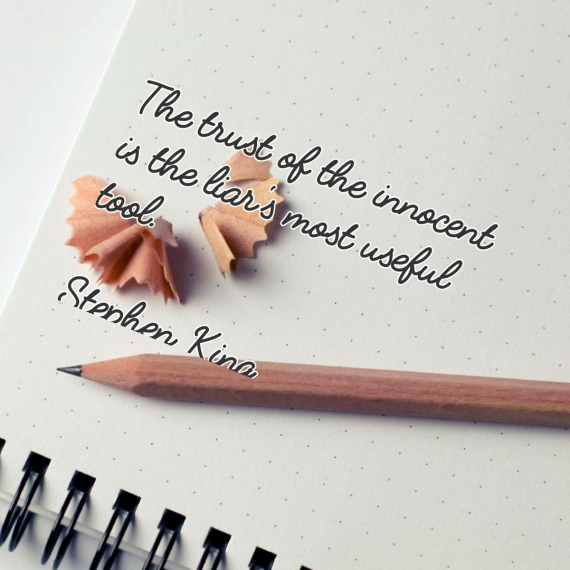 The trust of the innocent
is the liar's most useful
tool.
Stephen King